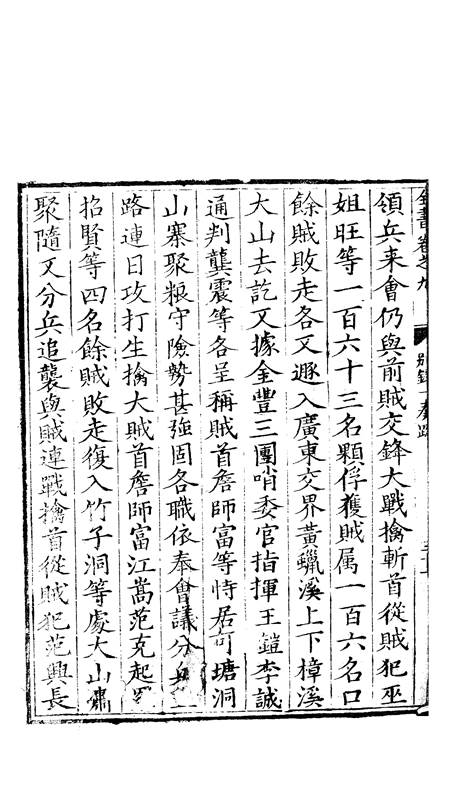 全書卷之九 別錄 奏疏
領兵来會仍與前賊交鋒大戰擒斬首從賊犯巫
姐旺等一百六十三名顆俘獲賊属一百六名口
餘賊敗走各又遯入廣東交界黃蠟溪上下樟溪
大山去訖又據金豐三團哨委官指揮王鎧李誠
通判龔震等各呈稱賊首詹師富等恃居可塘洞
山寨聚粮守險勢甚強固各職依奉會議分兵
路連日攻打生擒大賊首詹師富江嵩范克起羅
招賢等四名餘賊敗走復入竹子洞等處大山嘯
聚隨又分兵追襲與賊連戰擒首從賊犯范興長